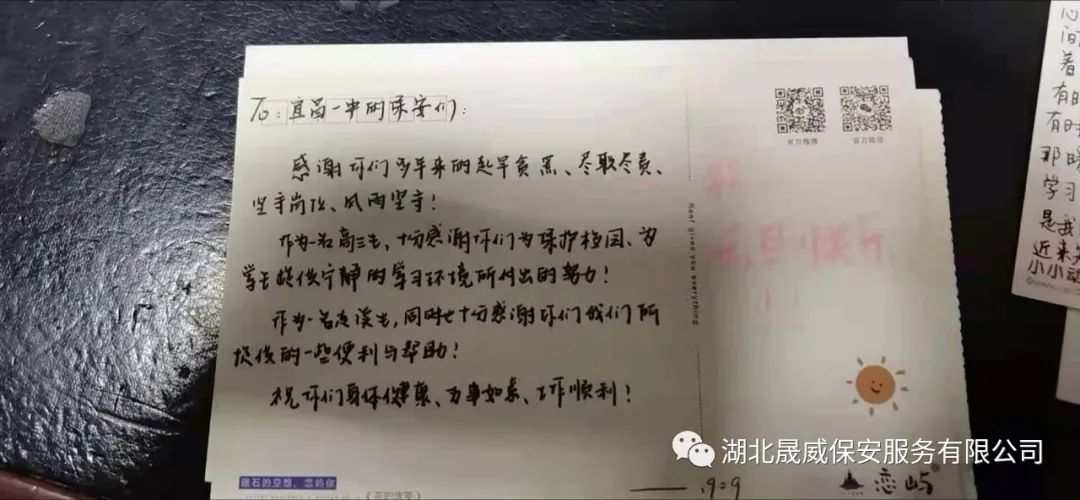 To：宜昌一中的保安们：
感谢你们多年来的起早贪黑、尽职尽责、
坚守岗位、风雨坚守！
作为一名高三生，十分感谢你们为保护校园、为
学生提供宁静的学习环境所付出的努力！
作为一名走读生，同时也十分感谢你们我们所
提供的一些便利与帮助！
祝你们身体健康、万事如意、工作顺利！
官方微博
官方微信
祝
元旦快乐
！！
Reef gives you everything
礁石的空想，恋屿你
恋屿
1909
有时
有时
那时
学习
是我
近来
小小动
湖北晟威保安服务有限公司